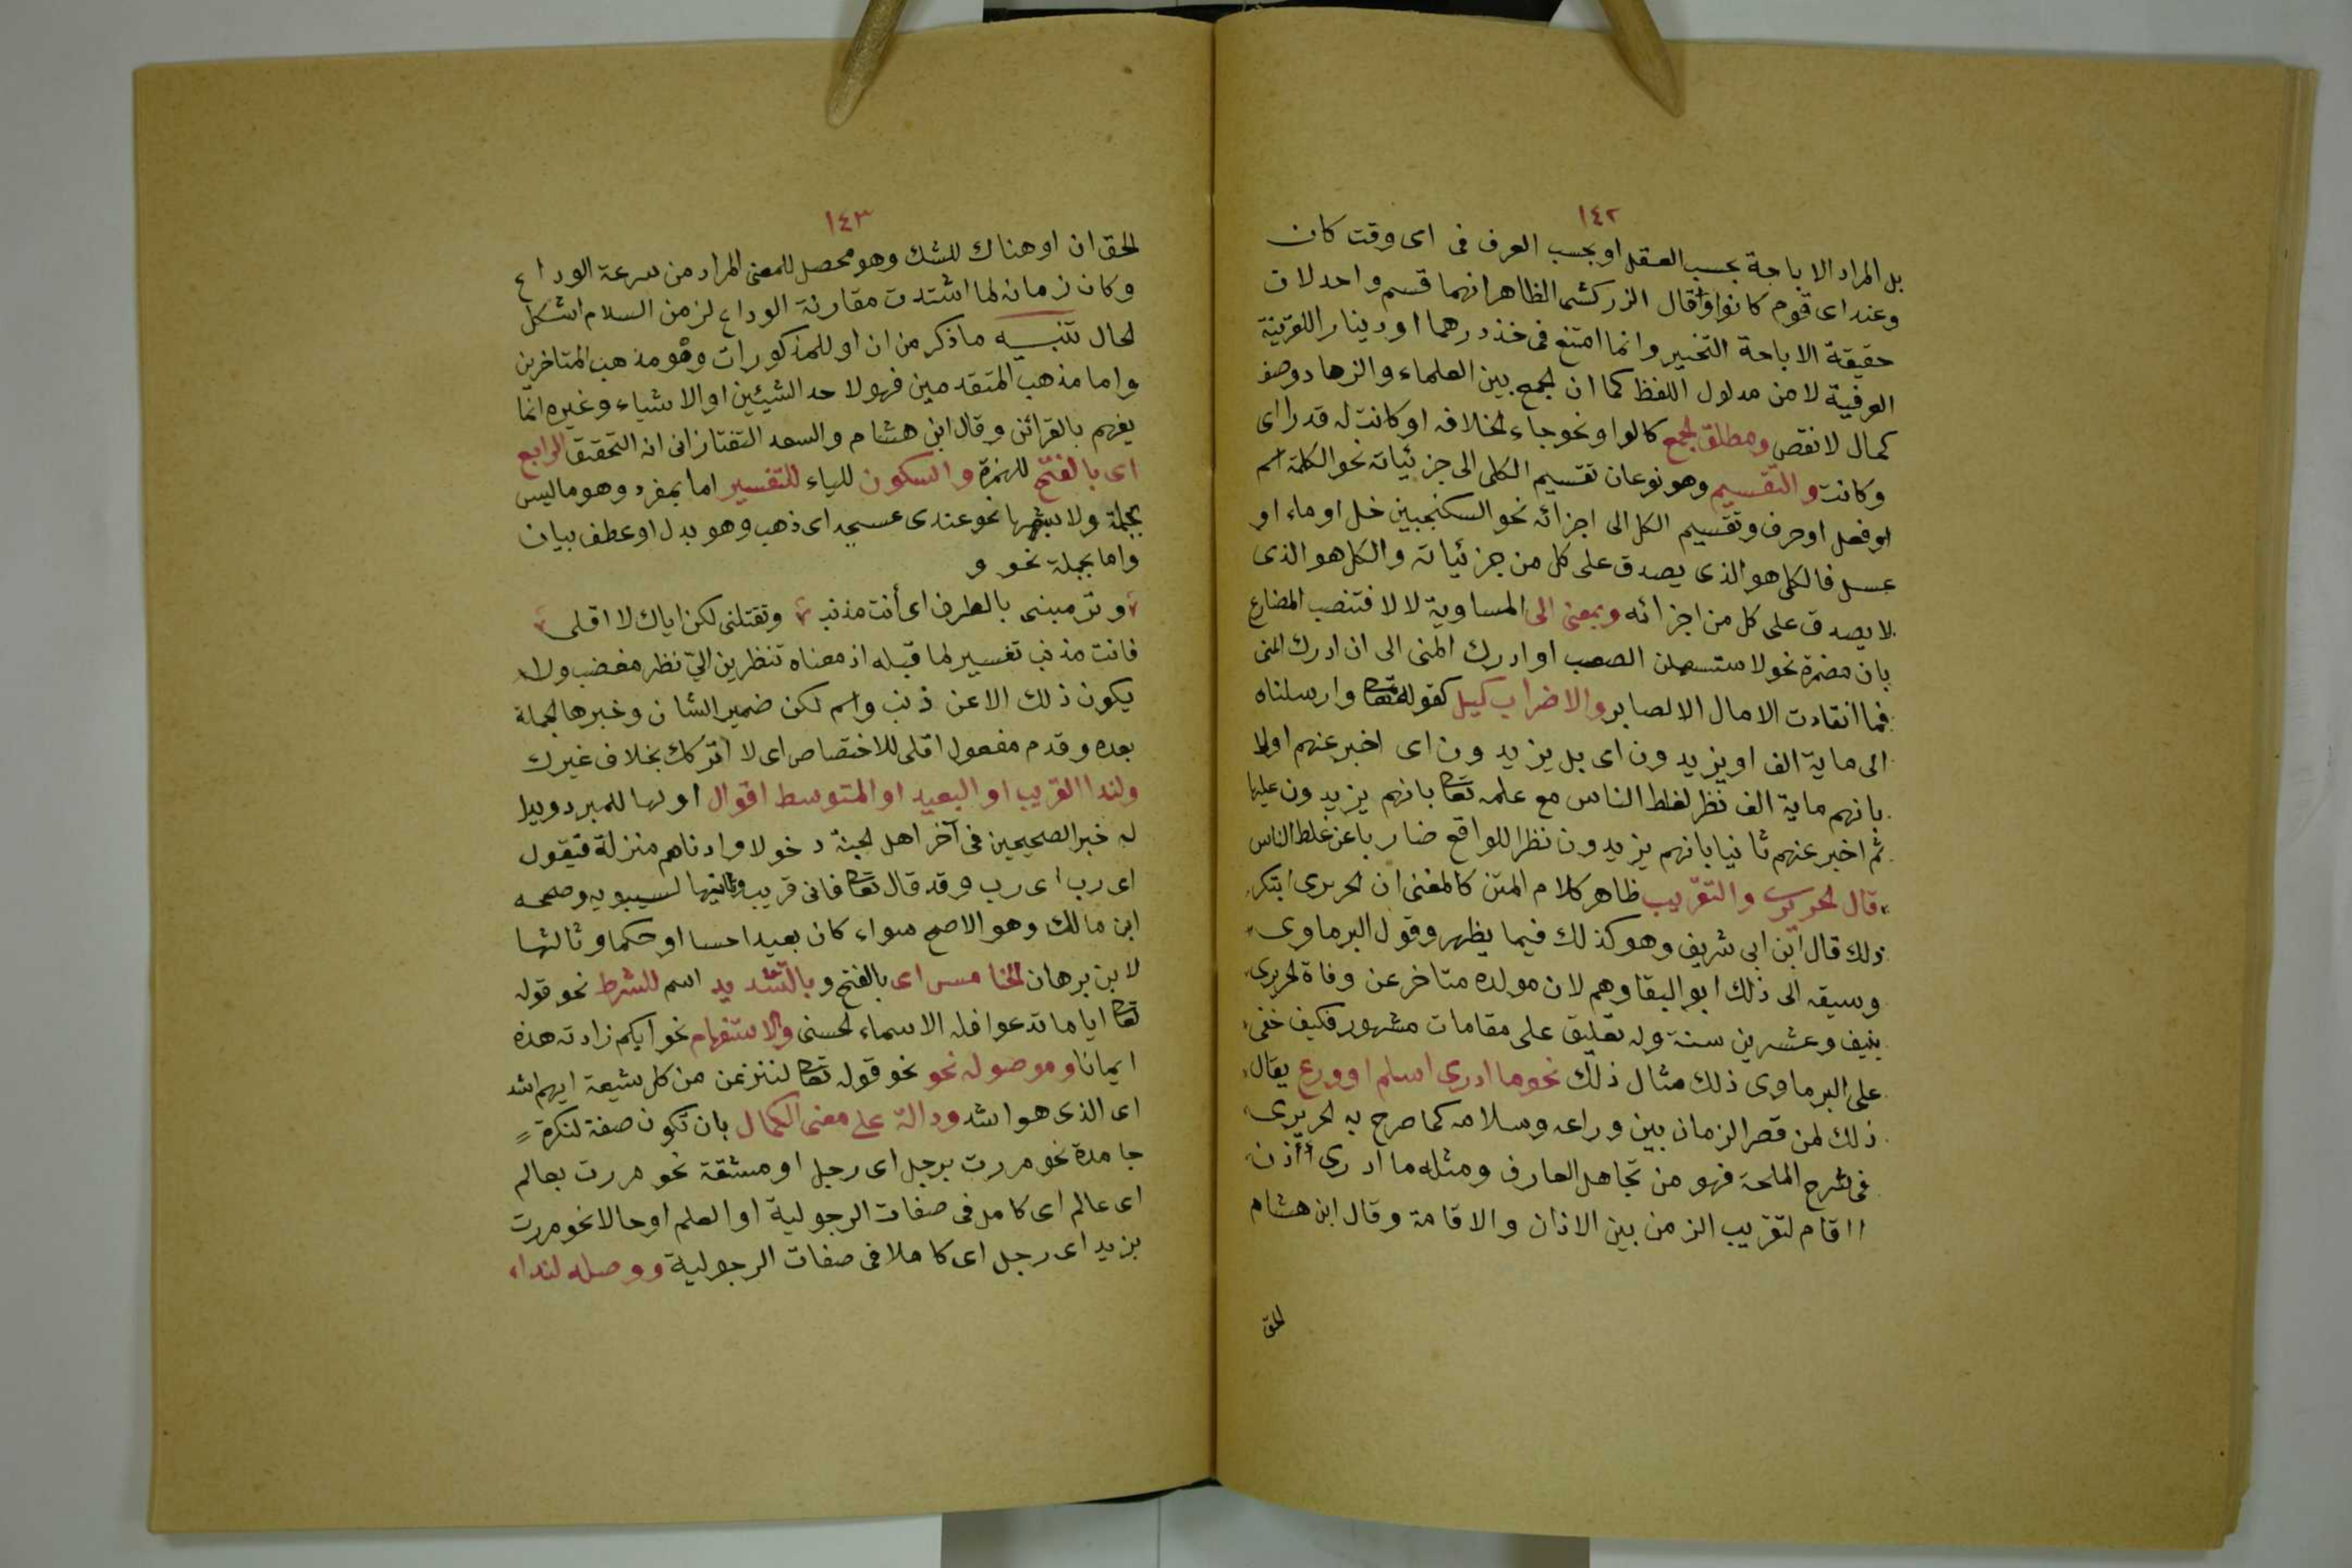 ١٤٢
بل المراد الاباحة بحسب العقل او بحسب العرف فى اى وقت كان
وعند اى قوم كانوا وقال الزركشى الظاهر انهما قسم واحد لان
حقيقة الاباحة التخيير وانما امتنع فى خذ درهما او دينارا للقرينة
العرفية لا من مدلول اللفظ كما ان الجمع بين العلماء والزهاد وصف
كمال لا نقص ومطلق الجمع كالواو نحو جاء الخلافه او كانت له قدرا اى
وكانت والتقسيم وهو نوعان تقسيم الكلى الى جزئياته نحو الكلمة اسم
او فعل او حرف وتقسيم الكل الى اجزائه نحو السكنجبين خل او ماء او
عسل فالكلى هو الذى يصدق على كل من جزئياته والكل هو الذى
لا يصدق على كل من اجزائه وبمعنى الى المساوية لالا فتنصب المضارع
بان مضمرة نحو لاستسهلن الصعب او ادرك المنى الى ان ادرك المنى
فما انقادت الامال الا لصابر والاضراب كبل كقوله تعا وارسلناه
الى ماية الف او يزيدون اى بل يزيدون اى اخبر عنهم اولا
بانهم ماية الف نظر لغلط الناس مع علمه تعا بانهم يزيدون عليها
ثم اخبر عنهم ثانيا بانهم يزيدون نظرا للواقع ضاربا عن غلط الناس
قال الحريرى والتقريب ظاهر كلام المتن كالمغنى ان الحريرى ابتكر
ذلك قال ابن ابى شريف وهو كذلك فيما يظهر وقول البرماوى
وسبقه الى ذلك ابو البقا وهم لان مولده متاخر عن وفاة الحريرى
بنيف وعشرين سنة وله تعليق على مقامات مشهور فكيف خفى
على البرماوى ذلك مثال ذلك نحو ما ادرى اسلم او ودع يقال
ذلك لمن قصر الزمان بين وداعه وسلامه كما صرح به الحريرى
فى شرح الملحة فهو من تجاهل العارف ومثله ما ادرى أأذن
ا اقام لتقريب الزمن بين الاذان والاقامة وقال ابن هشام
الحق
١٤٣
الحق ان او هناك للشك وهو محصل للمعنى المراد من سرعة الوداع
وكان زمانه لما اشتدت مقارنة الوداع لزمن السلام اشكل
الحال تنبيه ما ذكر من ان او للمذكورات وهو مذهب المتاخرين
واما مذهب المتقدمين فهو لاحد الشيئين او الاشياء وغيره انما
يفهم بالقرائن وقال ابن هشام والسعد التفتازانى انه التحقيق الرابع
اى بالفتح للهمزة والسكون للياء للتفسير اما بمفرد وهو ما ليس
بجملة ولا بشبهها نحو عندى عسجد اى ذهب وهو بدل او عطف بيان
واما بجملة نحو و
وترمينى بالطرف اى أنت مذنب وتقتلنى لكن اياك لا اقلى
فانت مذنب تفسير لما قبله اذ معناه تنظرين الىّ نظر مغضب ولا
يكون ذلك الا عن ذنب واسم لكن ضمير الشان وخبرها الجملة
بعده وقدم مفعول اقلى للاختصاص اى لا اتركك بخلاف غيرك
ولندا القريب او البعيد او المتوسط اقوال اولها للمبرد ويدل
له خبر الصحيحين فى آخر اهل الجنة دخولا وادناهم منزلة فيقول
اى رب اى رب وقد قال تعا فانى قريب وثانيها لسيبويه وصححه
ابن مالك وهو الاصح سواء كان بعيدا حسا او حكما وثالثها
لابن برهان الخامس اى بالفتح وبالتشديد اسم للشرط نحو قوله
تعا ايا ما تدعوا فله الاسماء الحسنى والاستفهام نحو ايكم زادته هذه
ايمانا وموصوله نحو نحو قوله تعا لننزعن من كل شيعة ايهم اشد
اى الذى هو اشد ودالة على معنى الكمال بان تكون صفة لنكرة
جامدة نحو مررت برجل اى رجل او مشتقة نحو مررت بعالم
اى عالم اى كامل فى صفات الرجولية او العلم او حالا نحو مررت
بزيد اى رجل اى كاملا فى صفات الرجولية ووصله لنداء